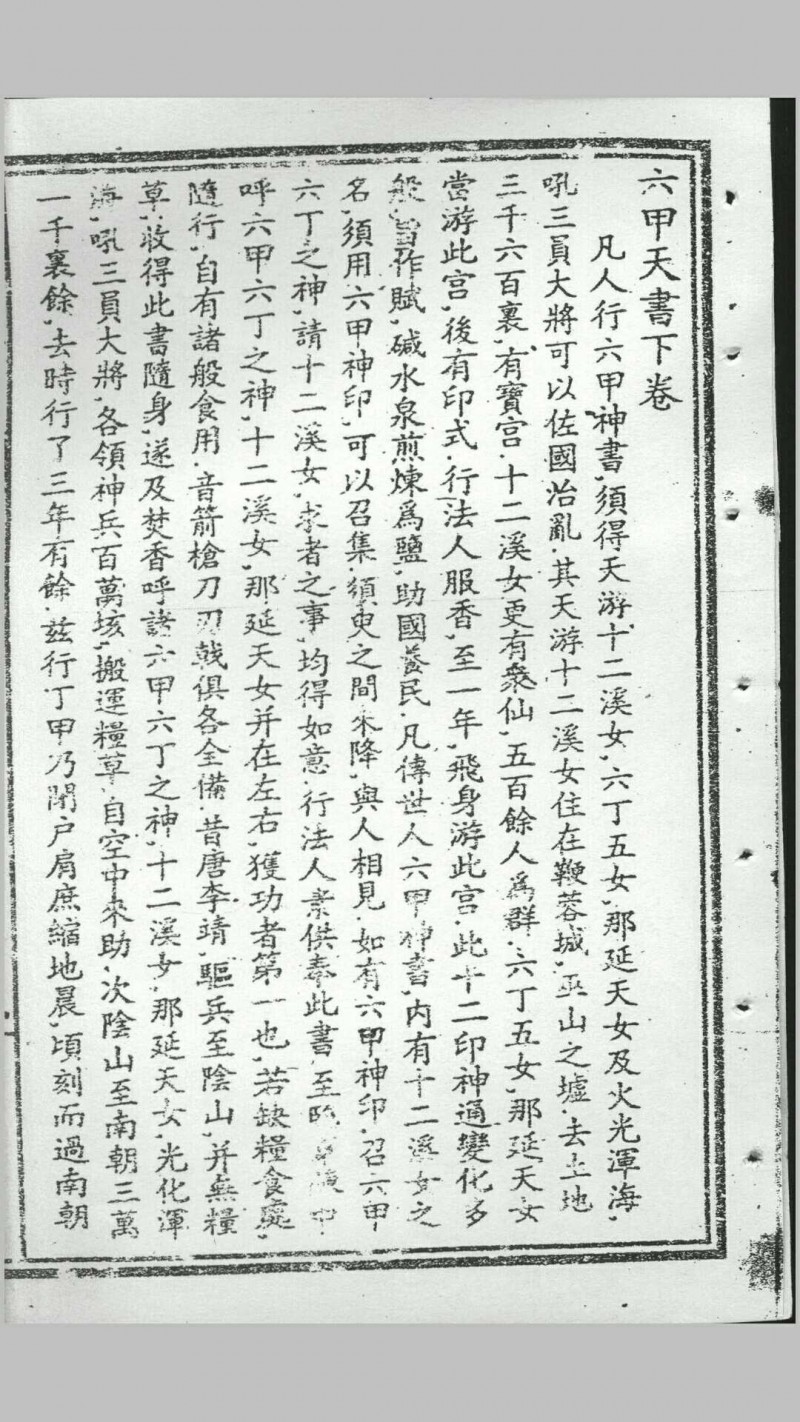 六甲天書下卷
凡人行六甲神書，須得天游十二溪女，六丁五女，那延天女及火光渾海，
吼三員大將可以佐國治亂．其天游十二溪女住在鞭蓉城，巫山之墟．去土地
三千六百裏，有寶宫．十二溪女更有衆仙，五百餘人爲群．六丁五女，那延天女
當游此宫，後有印式，行法人服香，至一年，飛身游此宫．此十二印神通變化多
般，皆作賦，碱水泉煎煉爲鹽，助國養民．凡傳世人六甲神書，内有十二溪女之
名，須用六甲神印，可以召集，須臾之間來降，與人相見．如有六甲神印，召六甲
六丁之神，請十二溪女，求者之事，均得如意．行法人素供奉此書，至中
呼六甲六丁之神，十二溪女，那延天女并在左右，獲功者第一也，若缺糧食處，
隨行，自有諸般食用．音箭槍刀刃戟俱各全備．昔唐李靖，驅兵至陰山，并無糧
草，收得此書隨身，遂及焚香呼諸六甲六丁之神，十二溪女，那延天女，光化渾
海，吼三員大將，各領神兵百萬垓，搬運糧草，自空中來助，次陰山至南朝三萬
一千裏餘，去時行了三年有餘．兹行丁甲乃閉户肩庶縮地晨，頃刻而過南朝